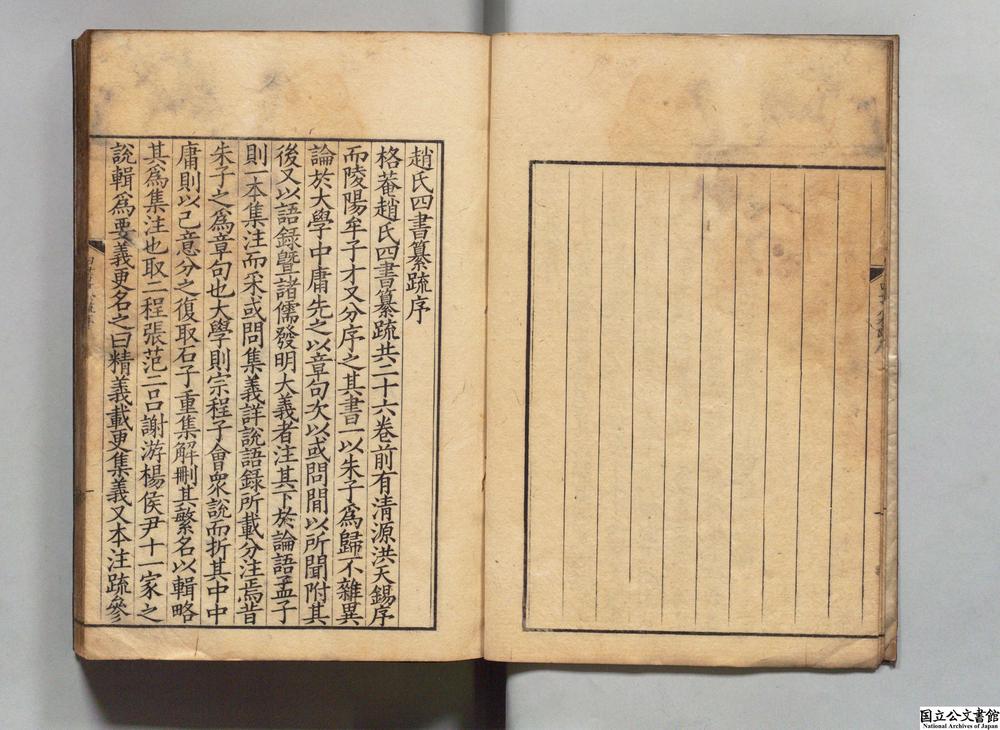 趙氏四書纂疏序
格菴趙氏四書纂疏共二十六卷前有淸源洪天錫序
而陵陽牟子才又分序之其書一以朱子爲歸不雜異
論於大學中庸先之以章句次以或問閒以所聞附其
後又以語錄曁諸儒發明大義者注其下於論語孟子
則一本集注而采或問集義詳說語錄所載分注焉昔
朱子之爲章句也大學則宗程子會衆說而折其中中
庸則以己意分之復取石子重集解刪其繁名以輯略
其爲集注也取二程張范二呂謝游楊侯尹十一家之
說輯爲要義更名之曰精義載更集義又本注疏參
国立公文書館
National Archives of Japan